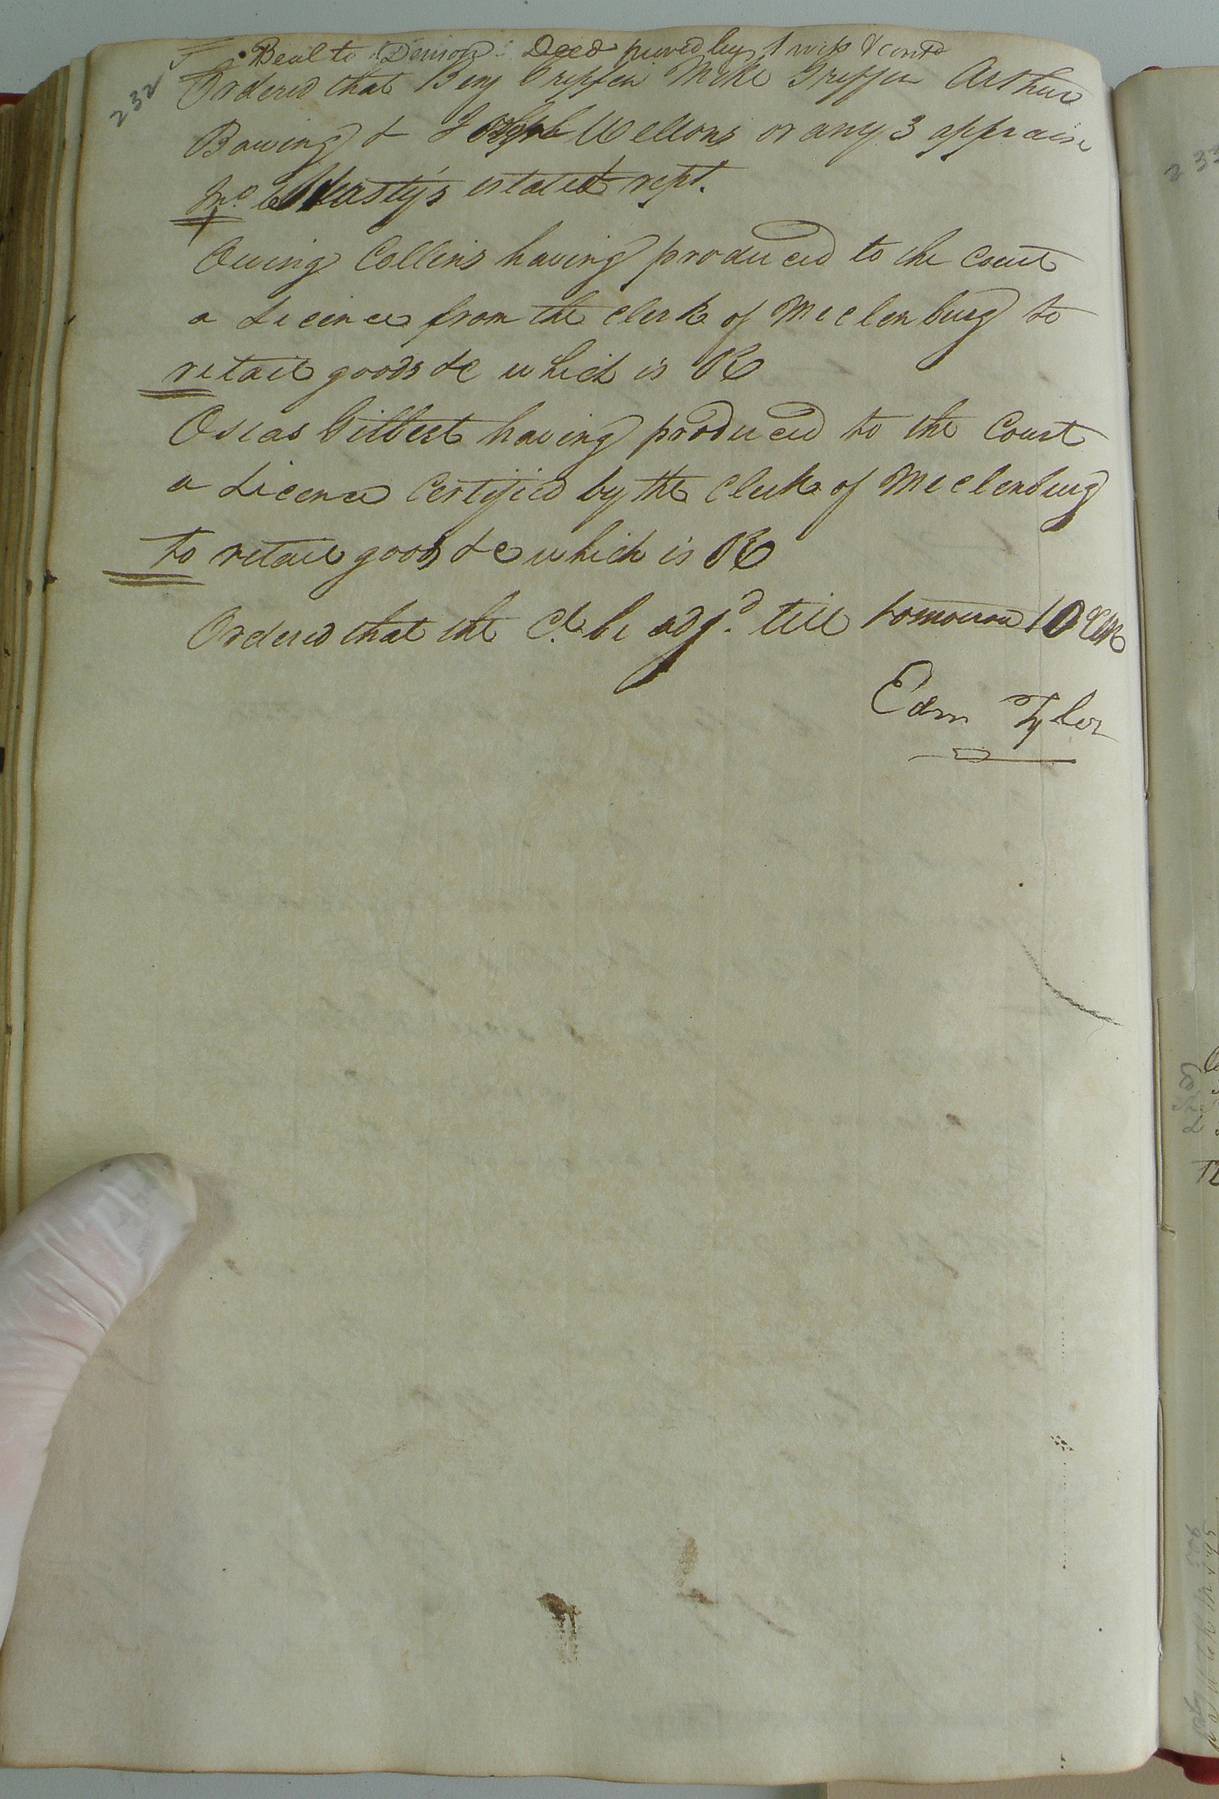 232
Beal to Denson Deed proved by 1 wits & contd
Ordered that Benj Griffin Mike Griffin Arthur
Bowing & Joseph Wellons or any 3 appraise
Jno Hasty's estate & rept.
Owing Collins having produced to the Court
a Licence from the clerk of Meclenburg to
retail goods &c which is R
Osias Gilbert having produced to the Court
a Licence Certified by the Clerk of Meclenburg
to retail goods &c which is R
Ordered that the Ct. be adjd. till tomorrow 10
Edm Tyler
233